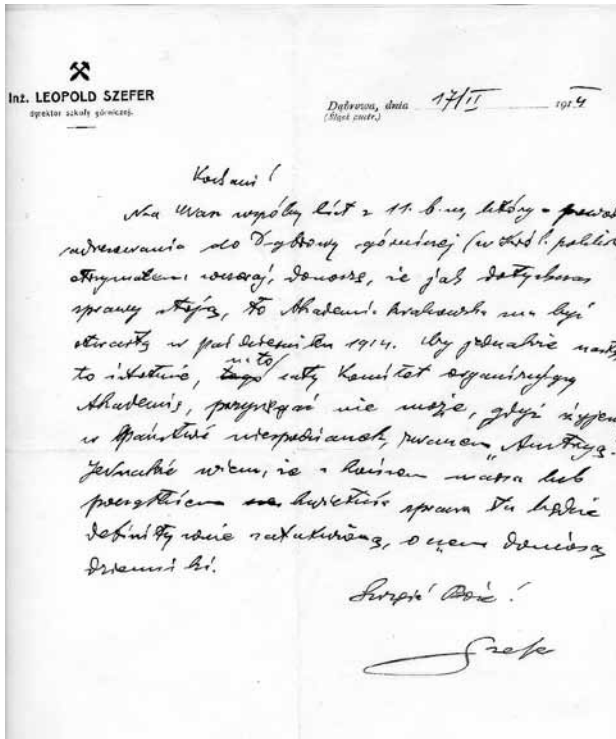 Inż. LEOPOLD SZEFER
dyrektor szkoły górniczej.
Dąbrowa, dnia 17/II 1914
(Śląsk austr.)
Kochani!
Na Wasz wspólny list z 11. b.m, który z powodu
adresowania do Dąbrowy górniczej (w Król. polskim
otrzymałem wczoraj, donoszę, że jak dotychczas
sprawy stoją, to Akademia krakowska ma być
otwartą w październiku 1914. Czy jednakże nastąpi
to istotnie, na to cały Komitet organizujący
Akademię, przysięgać nie może, gdyż żyjemy
w Państwie niespodzianek, zwanem „Austryą.
Jednakże wiem, że z końcem marca lub
początkiem kwietnia sprawa ta będzie
definitywnie załatwioną, o czem doniosą
dzienniki.
Szczęść Boże!
Szefer